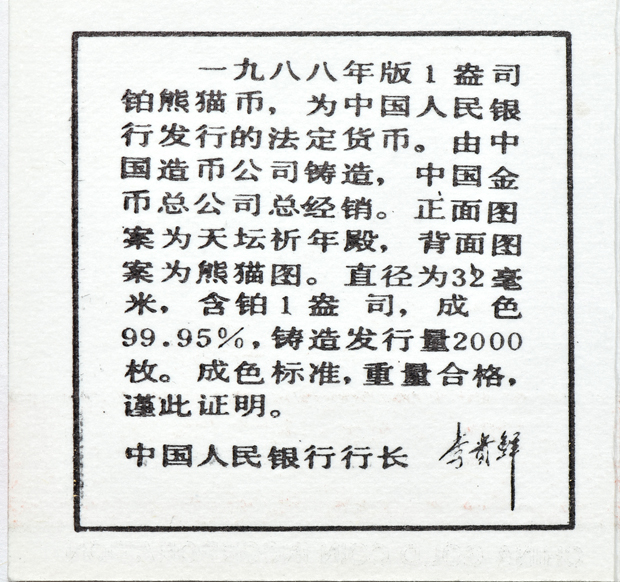 一九八八年版1盎司
铂熊猫币，为中国人民银
行发行的法定货币。由中
国造币公司铸造，中国金
币总公司总经销。正面图
案为天坛祈年殿，背面图
案为熊猫图。直径为32毫
米，含铂1盎司，成色
99.95%，铸造发行量2000
枚。成色标准，重量合格，
谨此证明。
中国人民银行行长 李贵鲜